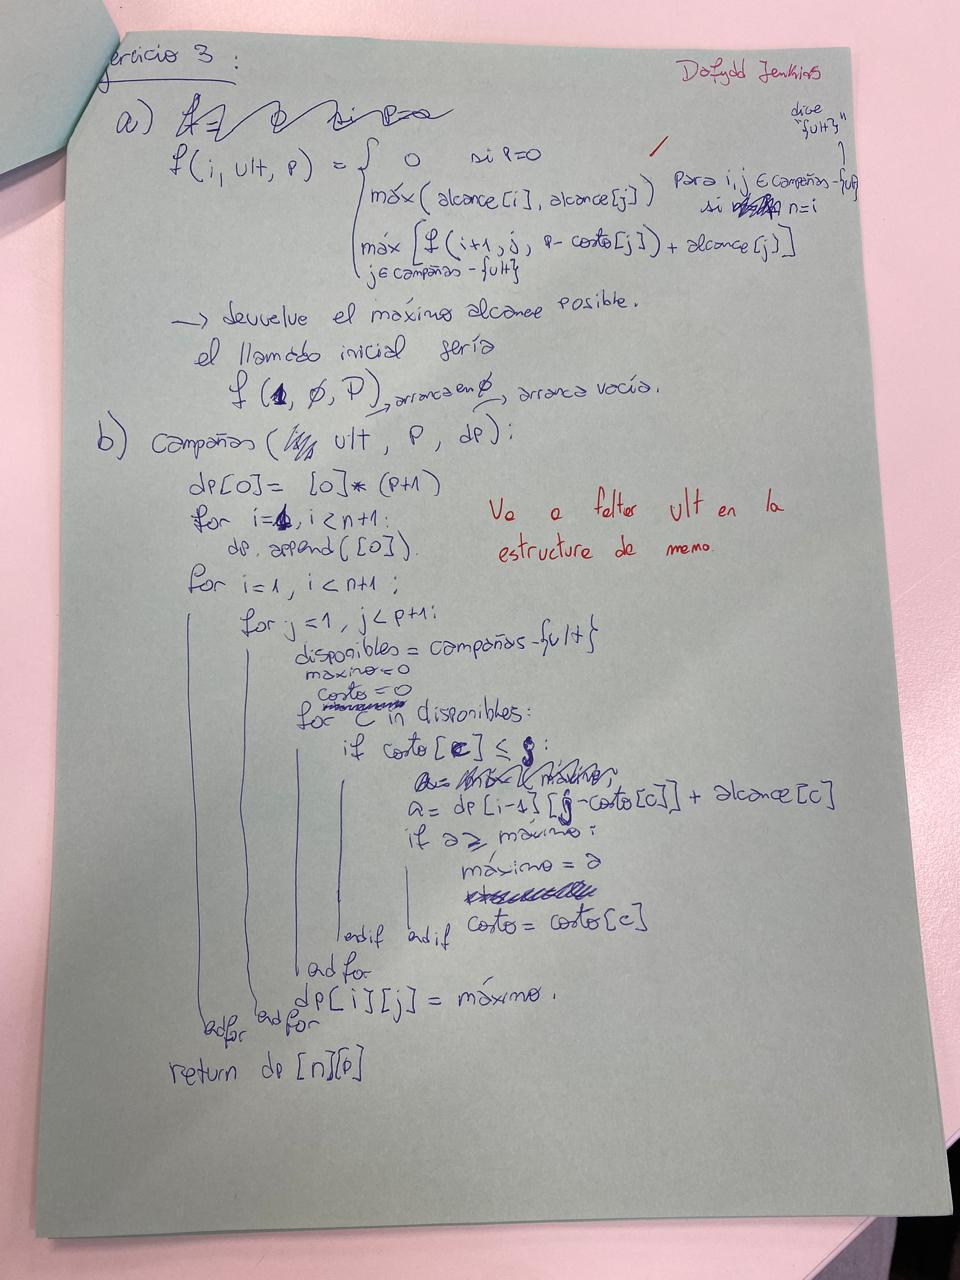 ercicio 3 :
Dafydd Jenkins
a)
dice
"{ult}"
f(i, ult, P) = { 0 si P=0
máx(alcance[i], alcance[j]) para i,j ∈ campañas-{ult}
si n=i
máx [f(i+1, j, P-costo[j]) + alcance[j]]
j∈campañas-{ult}
→ devuelve el máximo alcance posible.
el llamado inicial sería
f(1, ∅, P) → arranca en ∅, arranca vacía.
b) campañas( ult, P, dp):
dp[0]= [0]*(P+1)
for i=1, i<n+1:
dp.append([0]).
Va a faltar ult en la
estructura de memo.
for i=1, i<n+1:
for j=1, j<P+1:
disponibles = campañas-{ult}
maximo=0
costo=0
for c in disponibles:
if costo[c] ≤ j:
a= dp[i-1][j-costo[c]] + alcance[c]
if a ≥ máximo:
máximo = a
costo = costo[c]
endif endif
endfor
dp[i][j] = máximo.
endfor endfor
return dp[n][P]